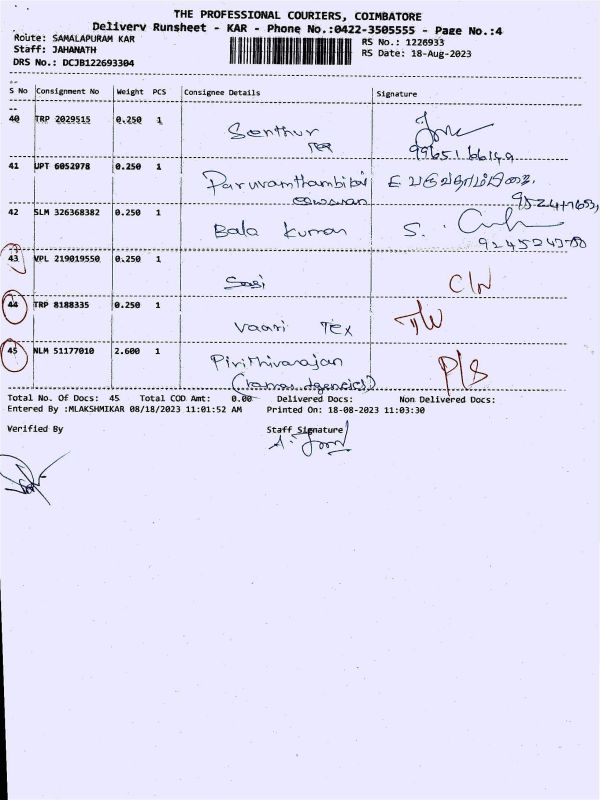 THE PROFESSIONAL COURIERS, COIMBATORE
Delivery Runsheet - KAR - Phone No.:0422-3505555 - Page No.:4
Route: SAMALAPURAM KAR RS No.: 1226933
Staff: JAHANATH RS Date: 18-Aug-2023
DRS No.: DCJB122693304
S No Consignment No Weight PCS Consignee Details Signature
40 TRP 2029515 0.250 1
Senthur
Tex
41 UPT 6052978 0.250 1
Paruvamthambikai
42 SLM 326368382 0.250 1
Bala Kumar S.
43 VPL 219019550 0.250 1
Sasi C/N
44 TRP 8188335 0.250 1
Vaari Tex
45 NLM 51177010 2.600 1
Pirithivarajan
P/S
Total No. Of Docs: 45 Total COD Amt: 0.00 Delivered Docs: Non Delivered Docs:
Entered By :MLAKSHMIKAR 08/18/2023 11:01:52 AM Printed On: 18-08-2023 11:03:30
Verified By Staff Signature